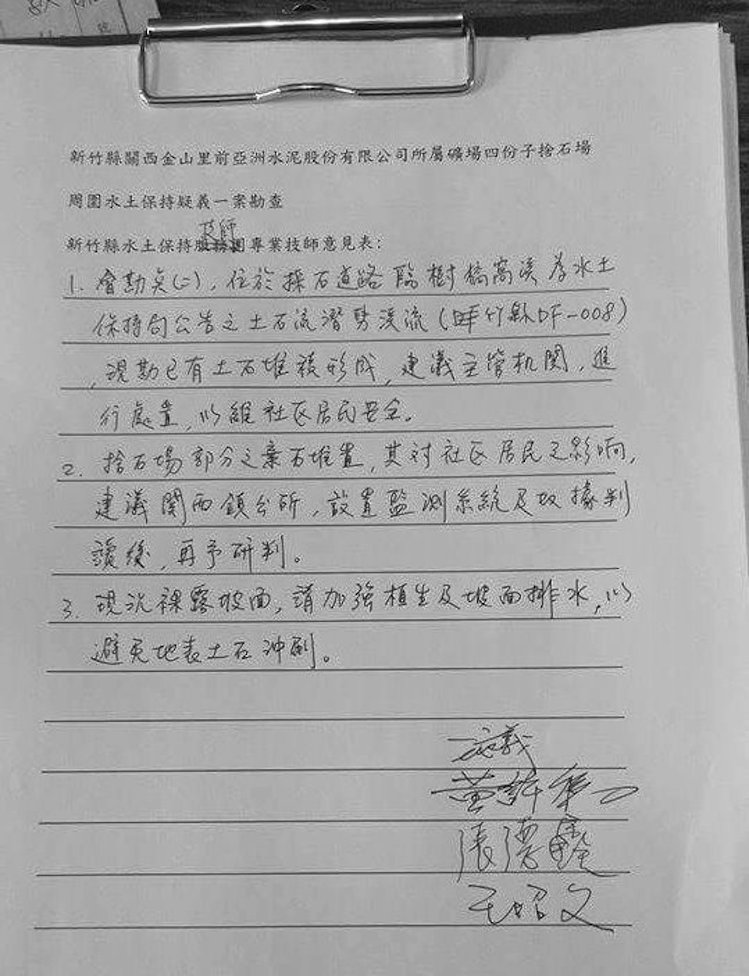 新竹縣關西金山里前亞洲水泥股份有限公司所屬礦場四份子捨石場
周圍水土保持疑義一案勘查
技師
新竹縣水土保持服務團專業技師意見表：
1. 會勘點(二)，位於採石道路臨樹橋窩溪為水土
保持局公告之土石流潛勢溪流（竹縣DF-008）
，現勘已有土石堆積形成，建議主管机関，進
行處置，以維社区居民安全。
2. 捨石場部分之棄石堆置，其对社区居民之影响，
建議関西鎮公所，設置監測系統及数據判
讀後，再予研判。
3. 現況裸露坡面，請加強植生及坡面排水，以
避免地表土石沖刷。
張德鑫
王昭文